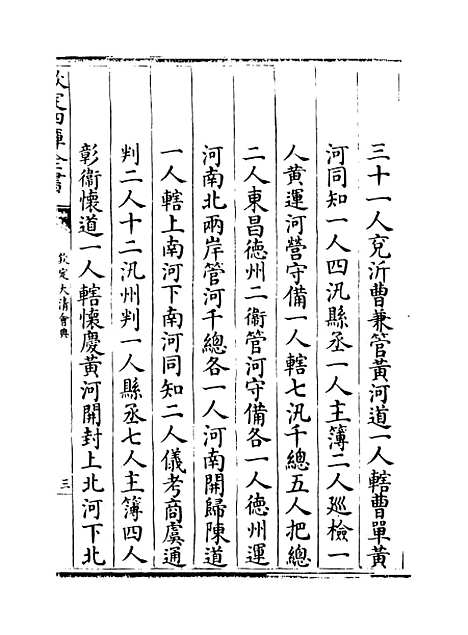 三十一人兗沂曹兼管黃河道一人轄曹單黃
河同知一人四汛縣丞一人主簿二人廵檢一
人黃運河營守備一人轄七汛千總五人把總
二人東昌德州二衞管河守備各一人德州運
河南北兩岸管河千總各一人河南開歸陳道
一人轄上南河下南河同知二人儀考商虞通
判二人十二汛州判一人縣丞七人主簿四人
彰衞懷道一人轄懷慶黃河開封上北河下北
欽定四庫全書
欽定大清會典
三